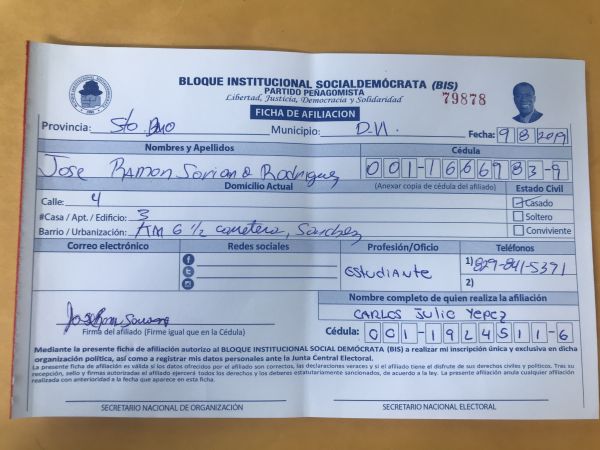 BLOQUE INSTITUCIONAL SOCIALDEMÓCRATA (BIS)
PARTIDO PEÑAGOMISTA
Libertad, Justicia, Democracia y Solidaridad
79878
FICHA DE AFILIACION
Provincia: Sto. Dmo Municipio: D.N. Fecha: 9 8 2019
Nombres y Apellidos Cédula
Jose Ramon Soriano Rodriguez 001-1666983-9
Domicilio Actual (Anexar copia de cédula del afiliado) Estado Civil
Calle: 4 Casado
#Casa / Apt. / Edificio: 3 Soltero
Barrio / Urbanización: KM 6 1/2 carretera, Sanchez Conviviente
Correo electrónico Redes sociales Profesión/Oficio Teléfonos
estudiante 1) 829-841-5371
2)
Nombre completo de quien realiza la afiliación
CARLOS Julio Yepez
Firma del afiliado (Firme igual que en la Cédula) Cédula: 001-1924511-6
Mediante la presente ficha de afiliación autorizo al BLOQUE INSTITUCIONAL SOCIAL DEMÓCRATA (BIS) a realizar mi inscripción única y exclusiva en dicha
organización política, así como a registrar mis datos personales ante la Junta Central Electoral.
La presente ficha de afiliación es válida si los datos ofrecidos por el afiliado son correctos, las declaraciones veraces y si el afiliado tiene el disfrute de sus derechos civiles y políticos. Tras su
recepción, sello y firmas autorizadas el afiliado ejercerá todos los derechos y los deberes estatutariamente sancionados, de acuerdo a la ley. La presente afiliación anula cualquier afiliación
realizada con anterioridad a la fecha que aparece en esta ficha.
SECRETARIO NACIONAL DE ORGANIZACIÓN SECRETARIO NACIONAL ELECTORAL